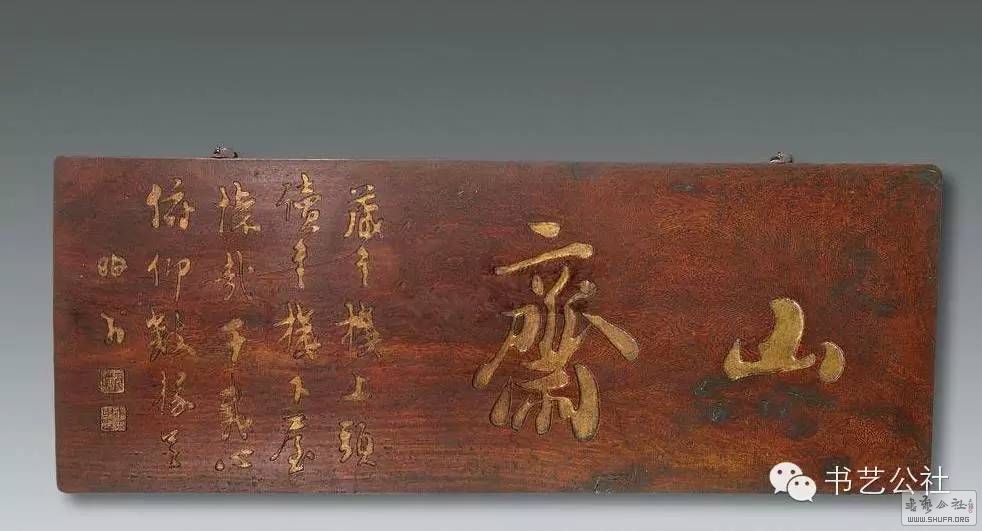 山齋
藏之機上頭
讀書機下屋
懷哉千載心
俯仰數椽足
昭力
书艺公社
書藝公社
WWW.SHUFA.ORG